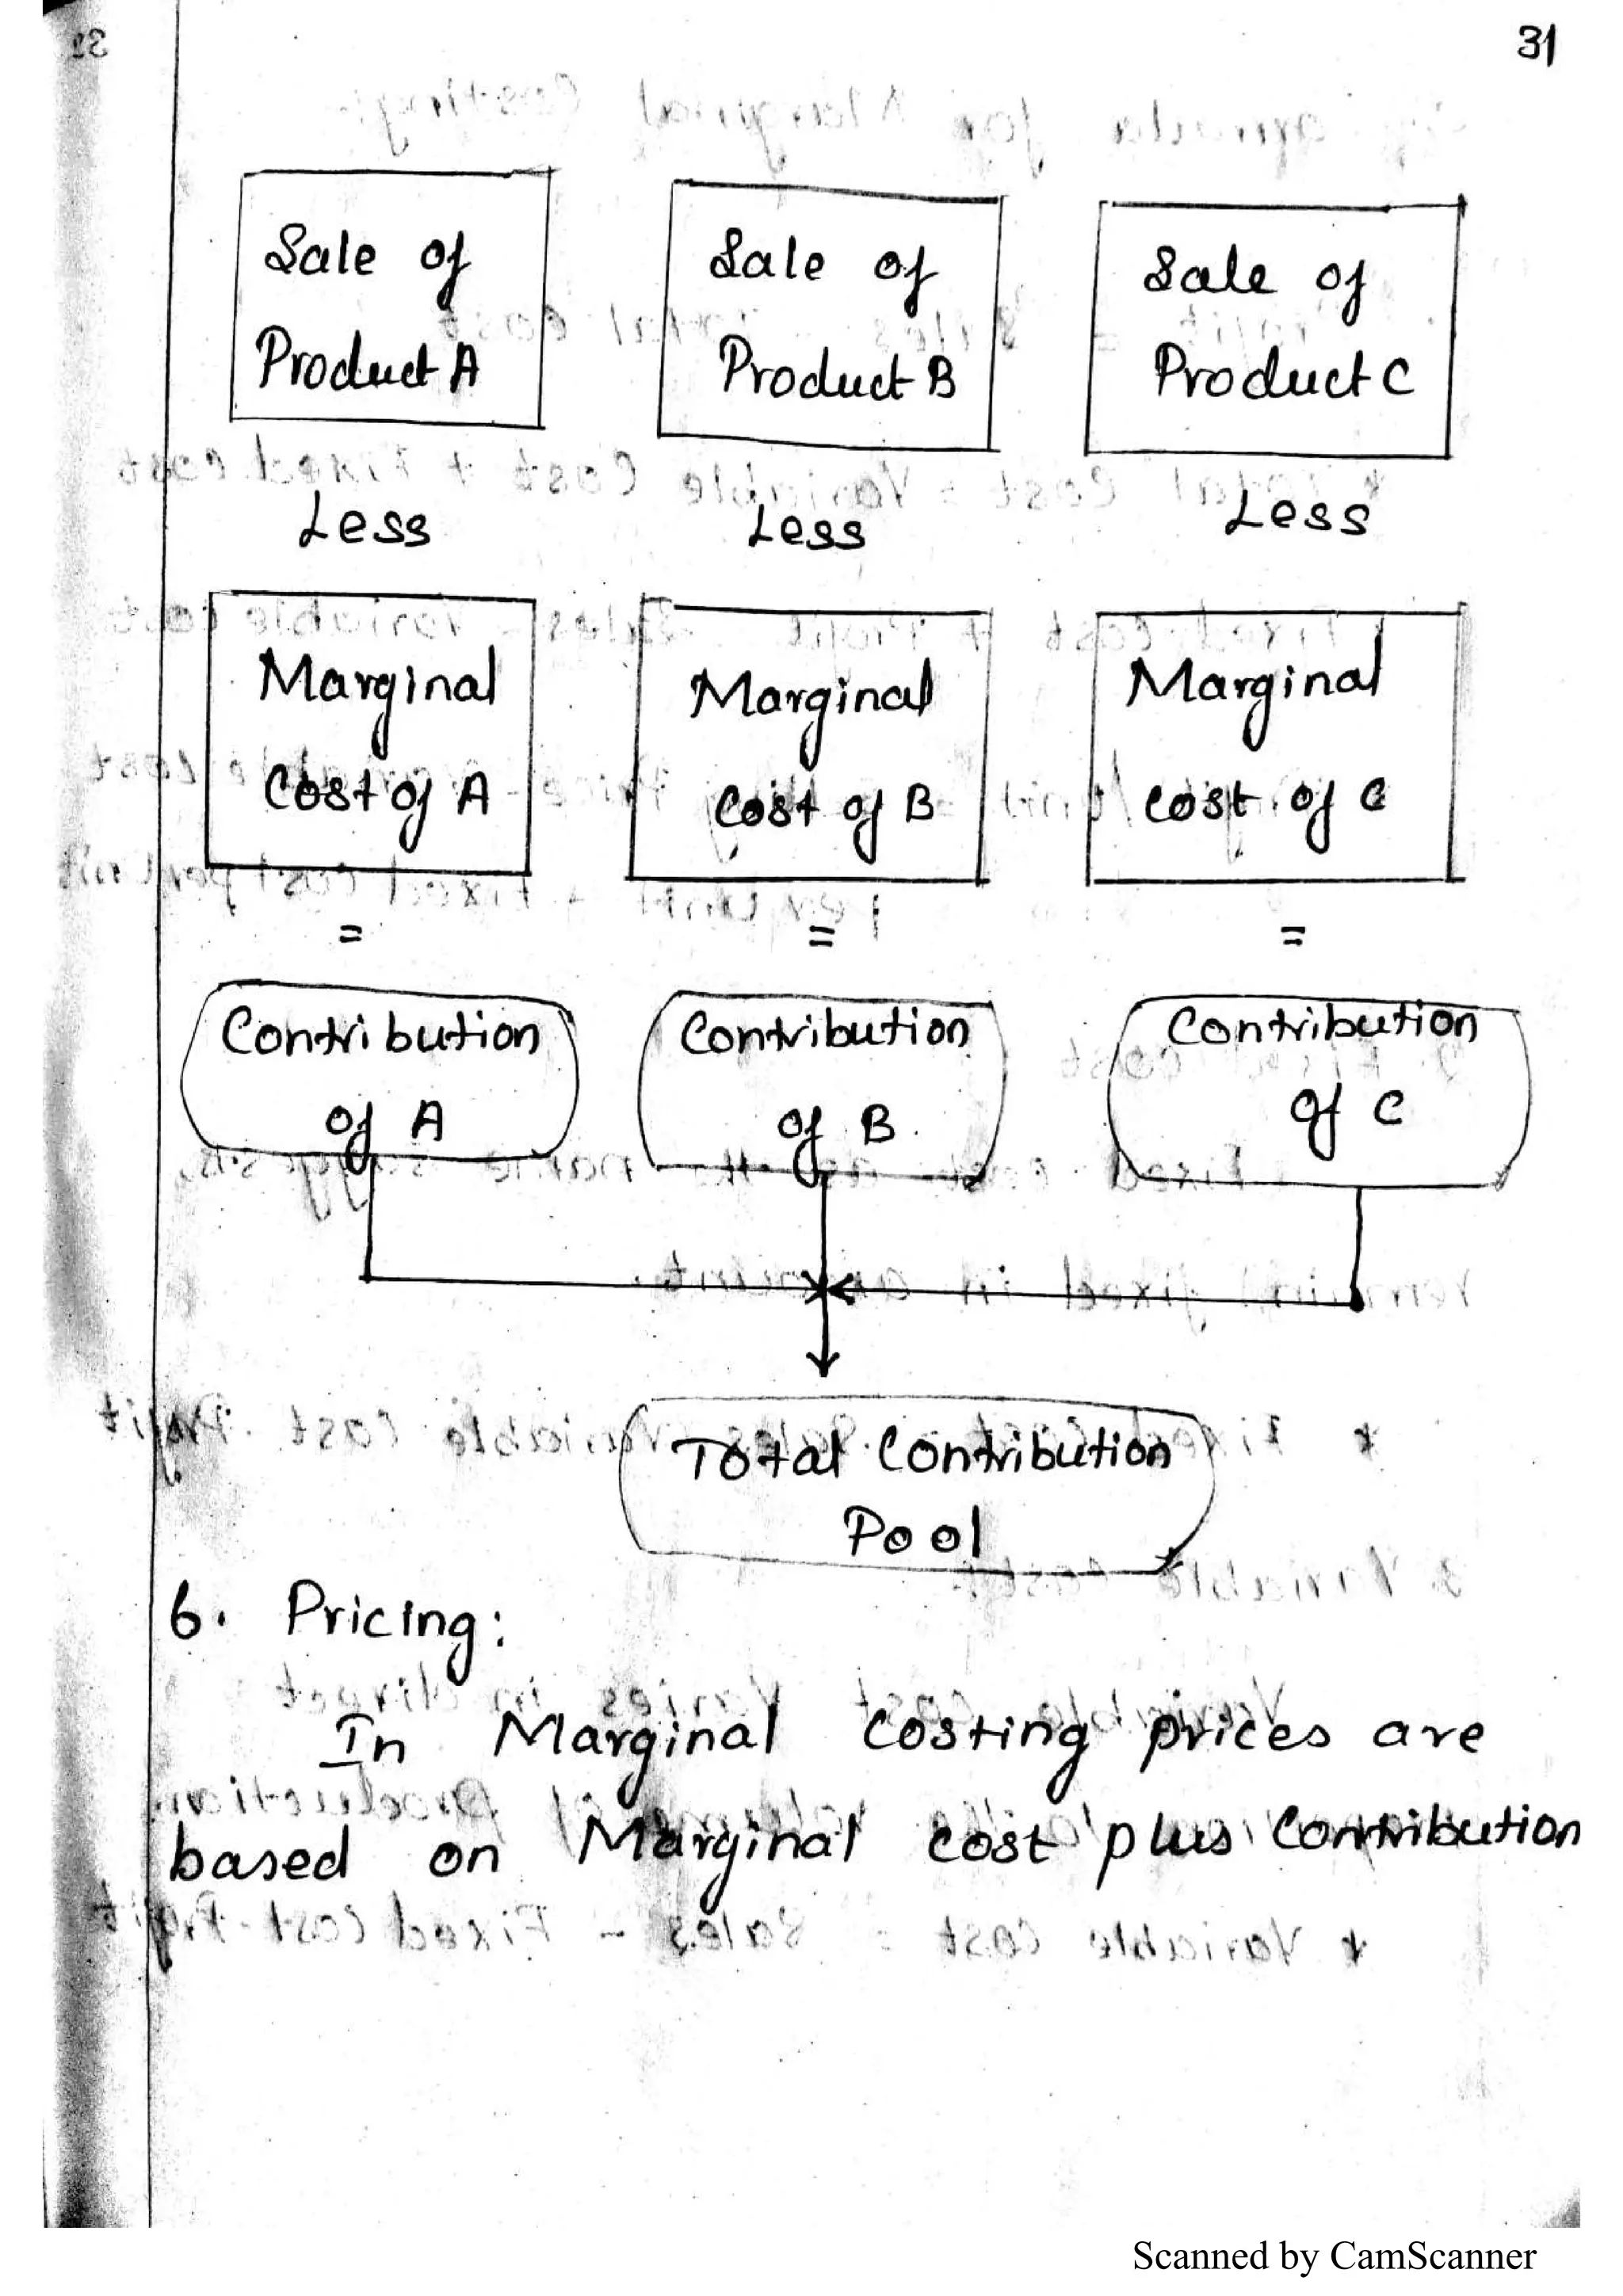 31
Sale of
Product A
Sale of
Product B
Sale of
Product C
Less
Less
Less
Marginal
Cost of A
Marginal
Cost of B
Marginal
cost of C
=
=
=
Contribution
of A
Contribution
of B
Contribution
of C
Total Contribution
Pool
6. Pricing:
In Marginal Costing prices are
based on Marginal cost plus Contribution
Scanned by CamScanner